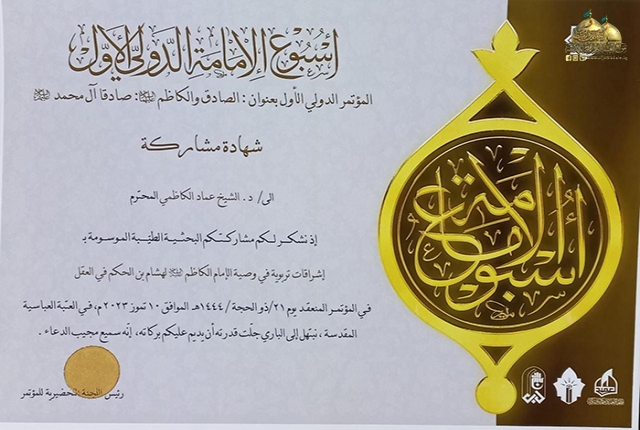 أسبوع الإمامة الدولي الأول
المؤتمر الدولي الأول بعنوان : الصادق والكاظم : صادقا آل محمد
شهادة مشاركة
الى/ د. الشيخ عماد الكاظمي المحترم
إذ نشكر لكم مشاركتكم البحثية الطيّبة الموسومة بـ
إشراقات تربوية في وصية الإمام الكاظم لهشام بن الحكم في العقل
في المؤتمر المنعقد يوم ٢١/ذو الحجة/١٤٤٤هـ الموافق ١٠ تموز ٢٠٢٣م، في العتبة العباسية
المقدسة ، نبتهل إلى الباري جلّت قدرته أن يديم عليكم بركاته ، إنّه سميع مجيب الدعاء .
رئيس اللجنة التحضيرية للمؤتمر
أسبوع الإمامة